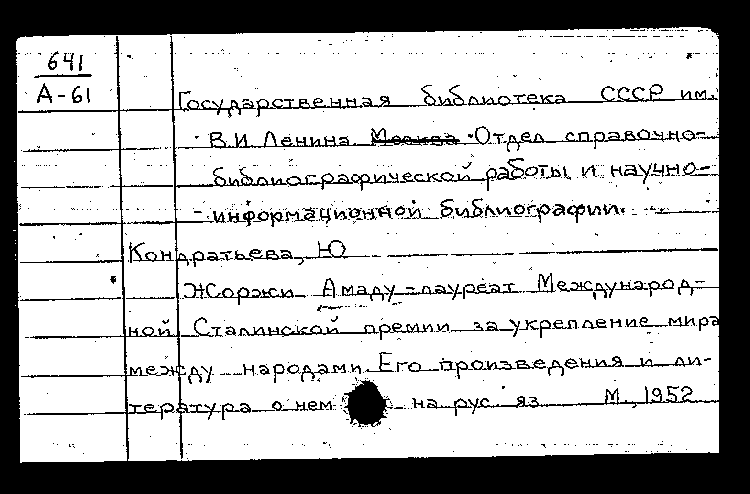 641
А-61
Государственная библиотека СССР им.
В.И. Ленина. Москва. Отдел справочно-
библиографической работы и научно-
информационной библиографии.
Кондратьева, Ю
Жоржи Амаду - лауреат Международ-
ной Сталинской премии за укрепление мира
между народами. Его произведения и ли-
тература о нем на рус. яз. М., 1952